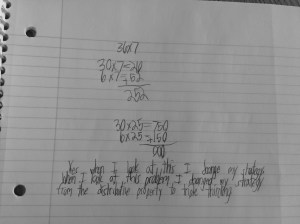 36x7
30x7=210
6x7=+52
252
30x25=750
6x25=+150
900
Yes when I look at this I change my strategy
when I look at this problem I changed my strategy
from the distributive property to